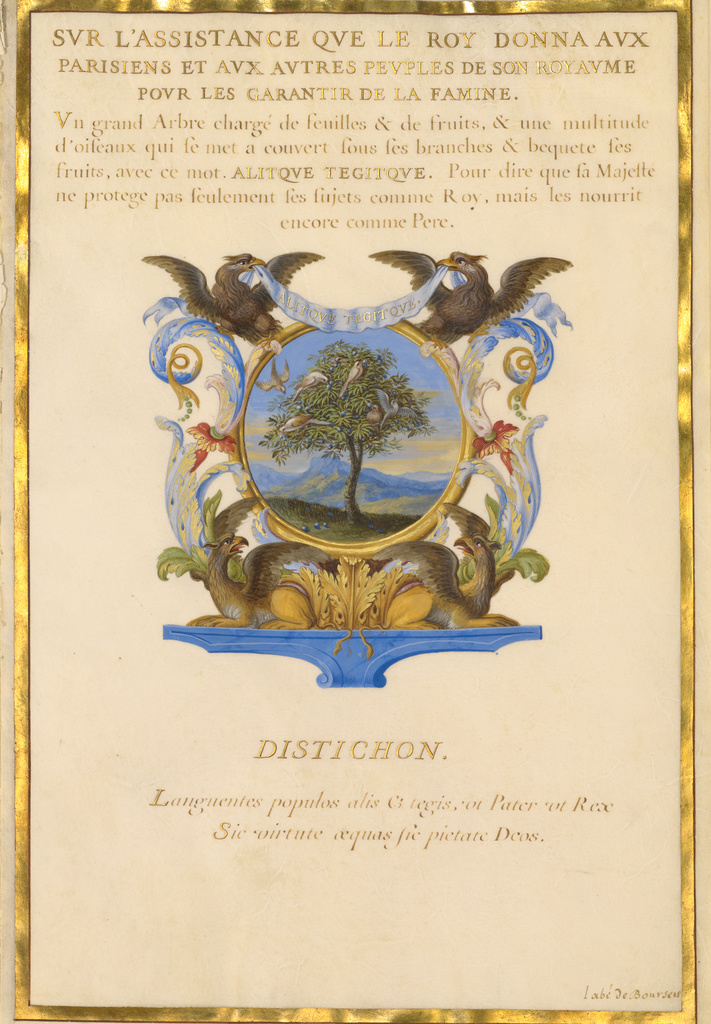 SVR L'ASSISTANCE QVE LE ROY DONNA AVX
PARISIENS ET AVX AVTRES PEVPLES DE SON ROYAVME
POVR LES GARANTIR DE LA FAMINE.
Vn grand Arbre chargé de feuilles & de fruits, & une multitude
d'oiſeaux qui ſe met a couvert ſous ſes branches & bequete ſes
fruits, avec ce mot. ALITQVE TEGITQVE. Pour dire que ſa Majeſté
ne protege pas ſeulement ſes ſujets comme Roy, mais les nourrit
encore comme Pere.
ALITQVE TEGITQVE.
DISTICHON.
Languentes populos alis & tegis, vt Pater vt Rex
Sic virtute æquas ſic pietate Deos.
l'abé de Bourseis